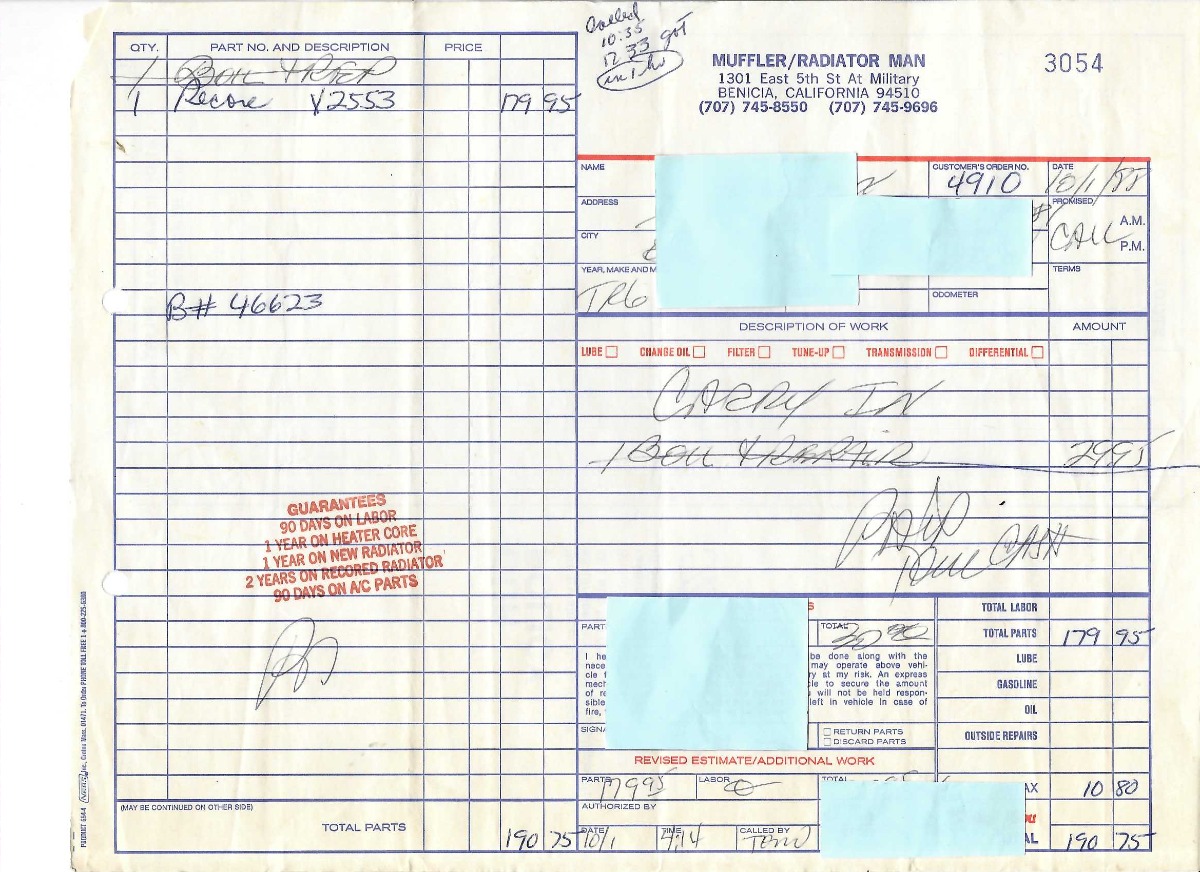 Called
10:35
12:33 got
in 1 hr
MUFFLER/RADIATOR MAN
1301 East 5th St At Military
BENICIA, CALIFORNIA 94510
(707) 745-8550 (707) 745-9696
3054
QTY. PART NO. AND DESCRIPTION PRICE
1 BOIL & REP
1 Recore V2553 179 95
B# 46623
GUARANTEES
90 DAYS ON LABOR
1 YEAR ON HEATER CORE
1 YEAR ON NEW RADIATOR
2 YEARS ON RECORED RADIATOR
90 DAYS ON A/C PARTS
(MAY BE CONTINUED ON OTHER SIDE)
TOTAL PARTS 190 75
PRODUCT 614-4 Inc., Groton, Mass. 01471. To Order PHONE TOLL FREE 1+800-225-6380
NAME CUSTOMER'S ORDER NO. DATE
4910 10/1/88
ADDRESS PROMISED
A.M.
CALL
P.M.
CITY
YEAR, MAKE AND M TERMS
TR6 ODOMETER
DESCRIPTION OF WORK AMOUNT
LUBE CHANGE OIL FILTER TUNE-UP TRANSMISSION DIFFERENTIAL
CARRY IN
1 BOIL & REPAIR 2995
PAID
CASH
S TOTAL LABOR
PART TOTAL TOTAL PARTS 179 95
I he be done along with the
nace may operate above vehi-
cle f ry at my risk. An express
mech le to secure the amount
of re will not be held respon-
sible left in vehicle in case of
fire,
LUBE
GASOLINE
OIL
OUTSIDE REPAIRS
SIGNA RETURN PARTS
DISCARD PARTS
REVISED ESTIMATE/ADDITIONAL WORK
PARTS 17995 LABOR TOTAL AX 10 80
AUTHORIZED BY
DATE 10/1 TIME 4:14 CALLED BY AL 190 75